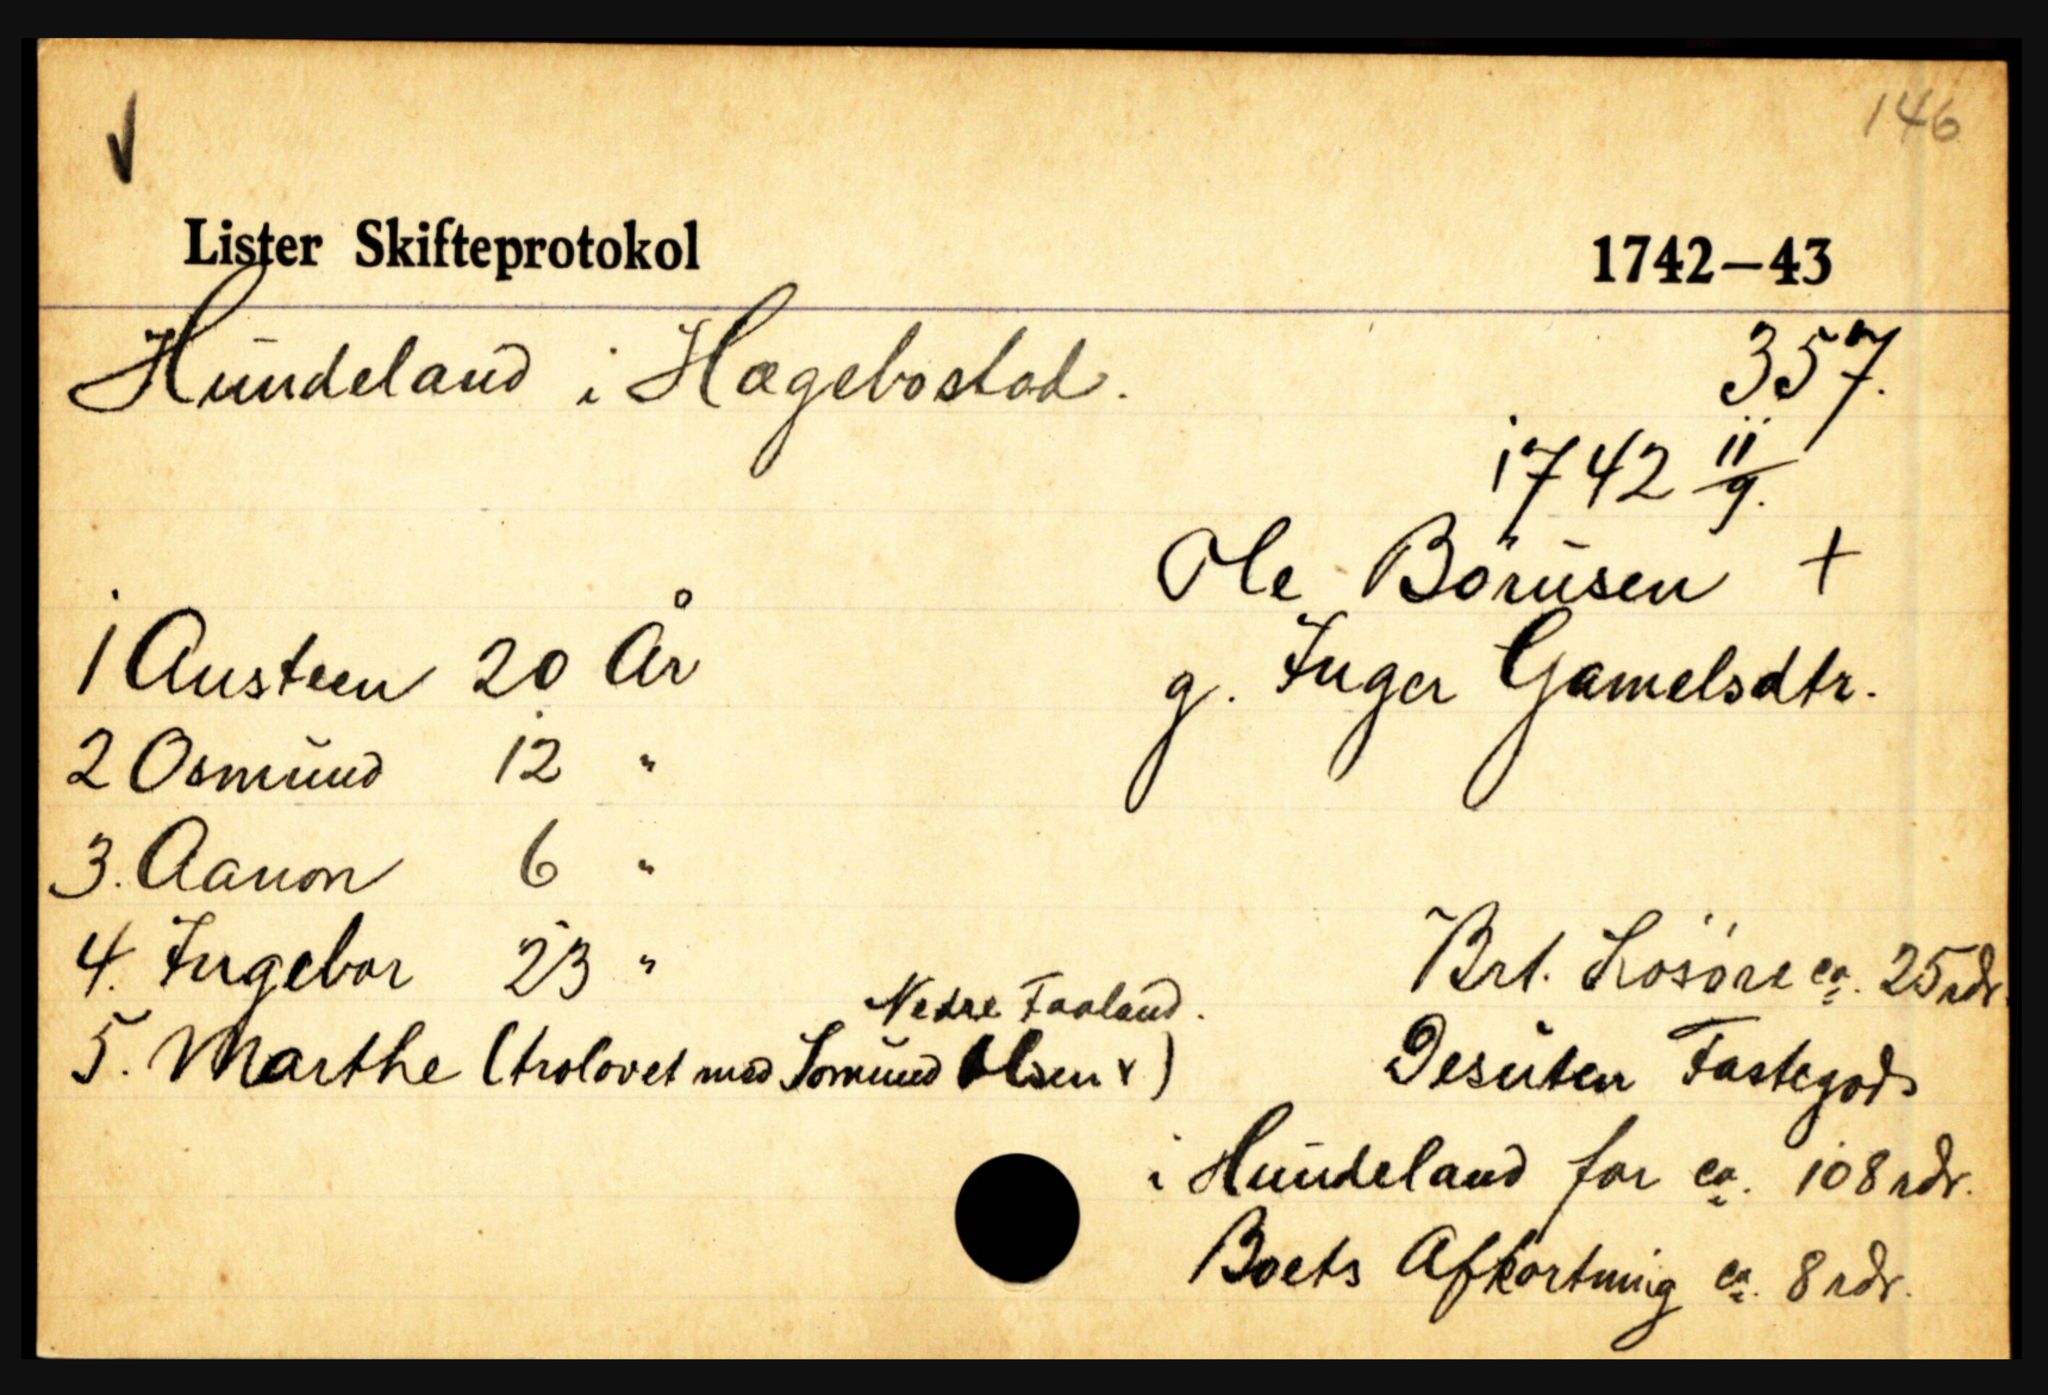 146
Lister Skifteprotokol 1742–43
Hundeland i Hægebostad. 357.
1742 11/9.
Ole Börüsen +
1 Austeen 20 År g. Inger Gamelsdtr.
2 Osmund 12 "
3. Aanon 6 "
4. Ingebor 23 " Brt. Lösöre ca. 25 rdr.
Nedre Faaland.
5. Marthe (trolovet med Somund Olsen v) Desuten Fastegods
i Hundeland for ca. 108 rdr.
Boets Afkortning ca. 8 rdr.